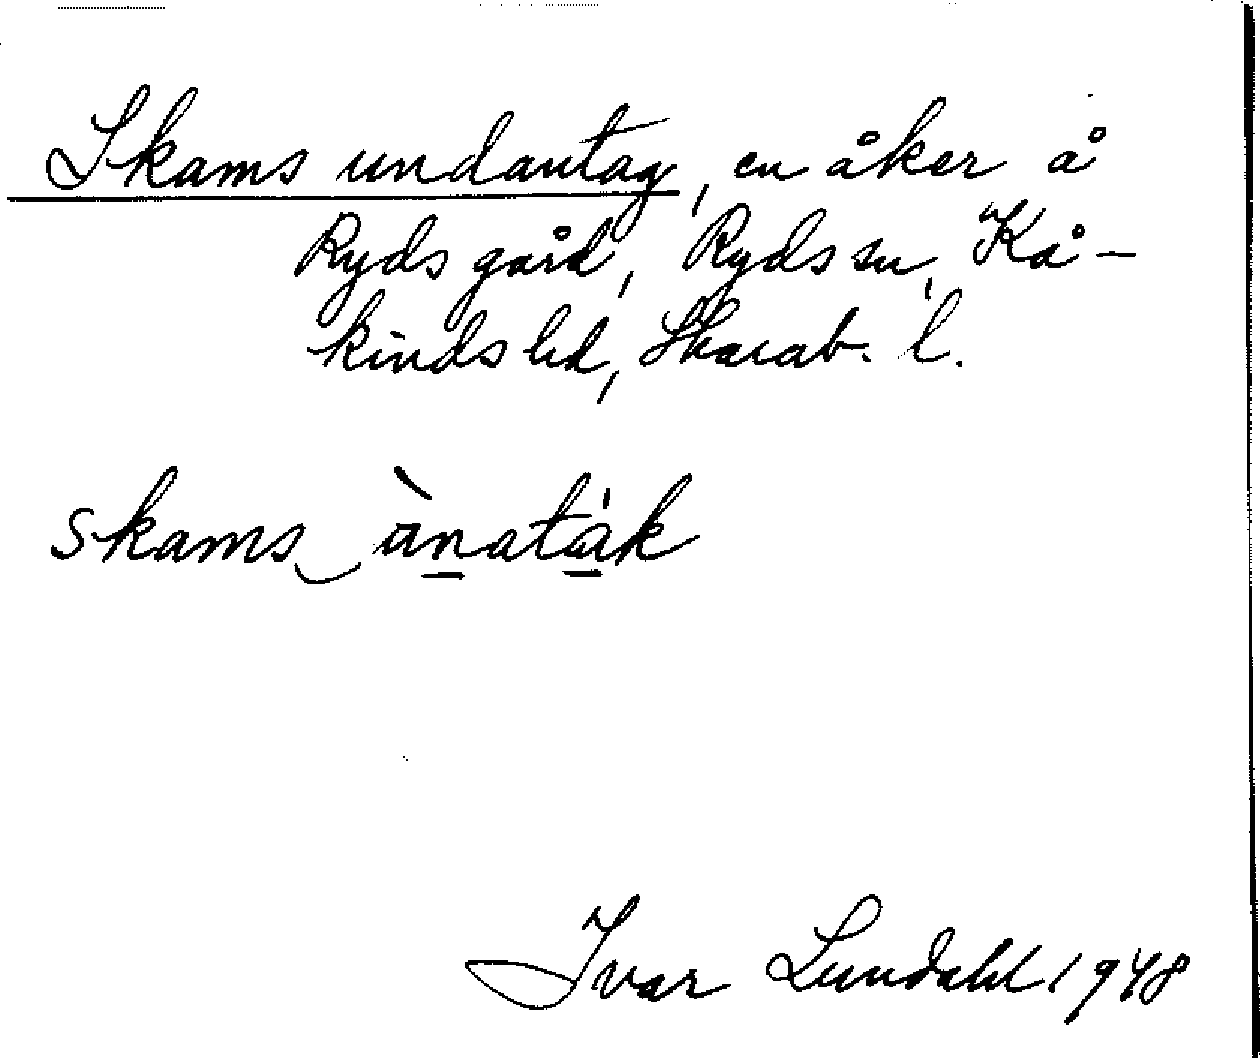 Skams undantag, en åker å
Ryds gård, Ryds sn, Kå-
kinds hd, Skarab. l.
skams ànaták
Ivar Lundahl 1948